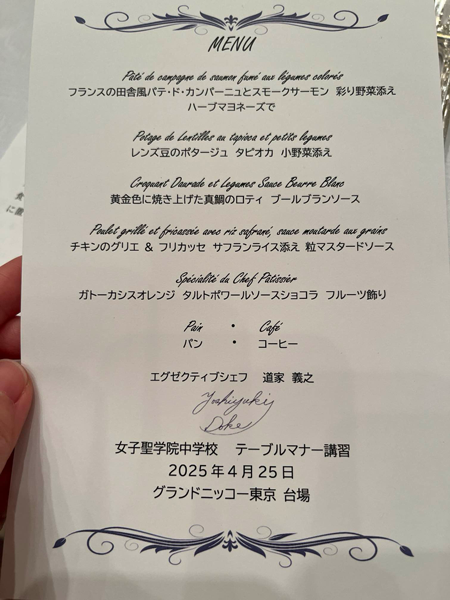 MENU
Pâté de campagne de saumon fumé aux légumes colorés
フランスの田舎風パテ・ド・カンパーニュとスモークサーモン 彩り野菜添え
ハーブマヨネーズで
Potage de Lentilles au tapioca et petits legumes
レンズ豆のポタージュ タピオカ 小野菜添え
Croquant Daurade et Legumes Sauce Beurre Blanc
黄金色に焼き上げた真鯛のロティ ブールブランソース
Poulet grillé et fricassée avec riz safrané, sauce moutarde aux grains
チキンのグリエ & フリカッセ サフランライス添え 粒マスタードソース
Spécialité du Chef Pâtissier
ガトーカシスオレンジ タルトポワールソースショコラ フルーツ飾り
Pain ・ Café
パン ・ コーヒー
エグゼクティブシェフ 道家 義之
Yoshiyuki
Doke
女子聖学院中学校 テーブルマナー講習
2025年4月25日
グランドニッコー東京 台場